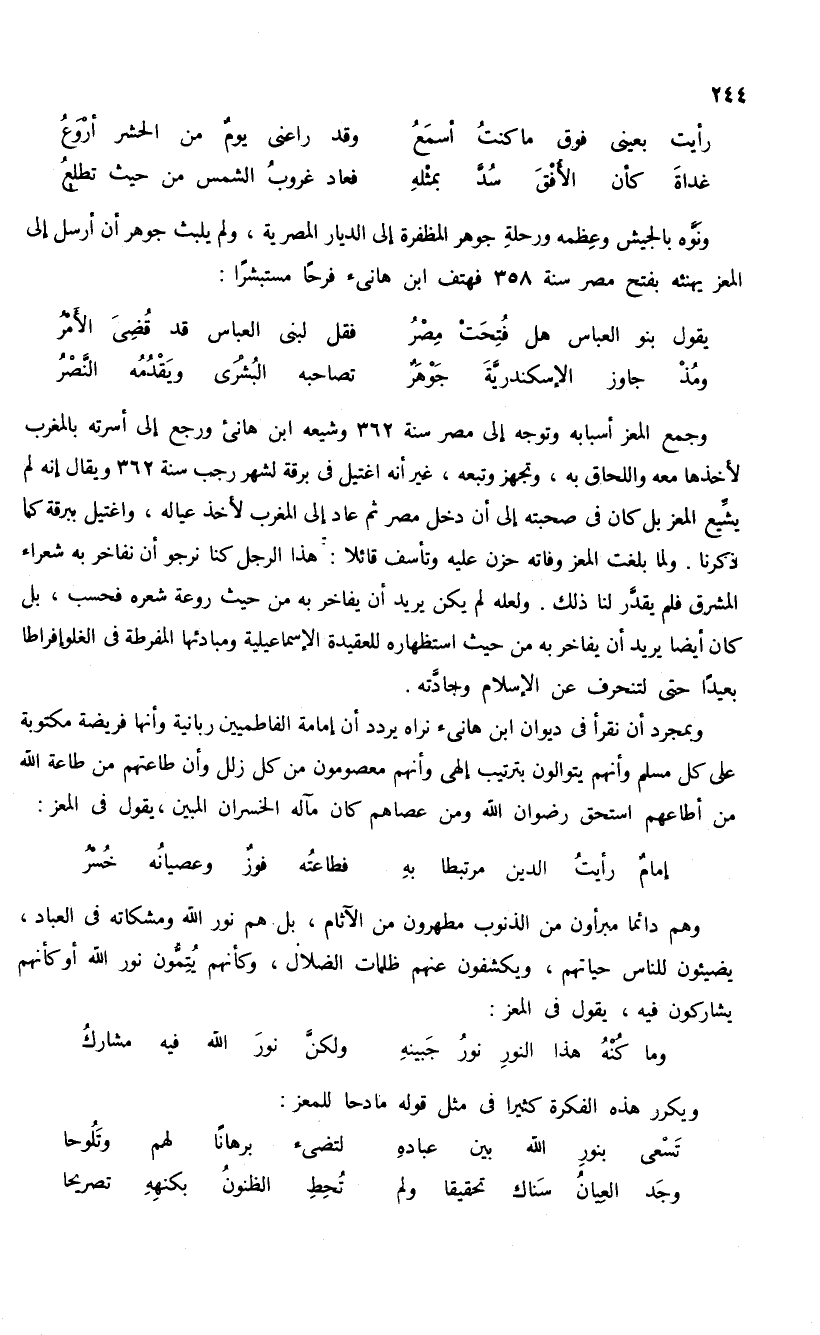 ٢٤٤
رأيت بعينى فوق ماكنتُ أسمَعُ وقد راعنى يومٌ من الحشر أرْوَعُ
غداةَ كأن الأُفْقَ سُدَّ بمثْلهِ فعاد غروبُ الشمس من حيث تطلعُ
ونَوَّه بالجيش وعِظمه ورحلةِ جوهر المظفرة إلى الديار المصرية ، ولم يلبث جوهر أن أرسل إلى
المعز يهنئه بفتح مصر سنة ٣٥٨ فهتف ابن هانىء فرحًا مستبشرًا :
يقول بنو العباس هل فُتِحَتْ مِصْرُ فقل لبنى العباس قد قُضِىَ الأمْرُ
ومُذْ جاوز الإسكندريَّةَ جَوْهَرٌ تصاحبه البُشْرَى ويَقْدُمُه النَّصْرُ
وجمع المعز أسبابه وتوجه إلى مصر سنة ٣٦٢ وشيعه ابن هانئ ورجع إلى أسرته بالمغرب
لأخذها معه واللحاق به ، وتجهز وتبعه ، غير أنه اغتيل فى برقة لشهر رجب سنة ٣٦٢ ويقال إنه لم
يشِّيع المعز بل كان فى صحبته إلى أن دخل مصر ثم عاد إلى المغرب لأخذ عياله ، واغتيل ببرقة كما
ذكرنا . ولما بلغت المعز وفاته حزن عليه وتأسف قائلا : هذا الرجل كنا نرجو أن نفاخر به شعراء
المشرق فلم يقدَّر لنا ذلك . ولعله لم يكن يريد أن يفاخر به من حيث روعة شعره فحسب ، بل
كان أيضا يريد أن يفاخر به من حيث استظهاره للعقيدة الإسماعيلية ومبادئها المفرطة فى الغلوإفراطا
بعيدًا حتى لتنحرف عن الإسلام وجادَّته .
وبمجرد أن نقرأ فى ديوان ابن هانىء نراه يردد أن إمامة الفاطميين ربانية وأنها فريضة مكتوبة
على كل مسلم وأنهم يتوالون بترتيب إلهى وأنهم معصومون من كل زلل وأن طاعتهم من طاعة الله
من أطاعهم استحق رضوان الله ومن عصاهم كان مآله الخسران المبين ،يقول فى المعز :
إمامٌ رأيتُ الدين مرتبطا بهِ فطاعتُه فوزٌ وعصيانُه خُسْرُ
وهم دائما مبرأون من الذنوب مطهرون من الآثام ، بل هم نور الله ومشكاته فى العباد ،
يضيئون للناس حياتهم ، ويكشفون عنهم ظلمات الضلال ، وكأنهم يُتِمُّون نور الله أوكأنهم
يشاركون فيه ، يقول فى المعز :
وما كُنْهُ هذا النورِ نورُ جَبينهِ ولكنَّ نورَ الله فيه مشاركُ
ويكرر هذه الفكرة كثيرا فى مثل قوله مادحا للمعز :
تَسْعى بنورِ الله بين عبادهِ لتضىء برهانًا لهم وتَلُوحا
وجَد العِيانُ سَناك تحقيقا ولم تُحِطِ الظنونُ بكنههِ تصريحا